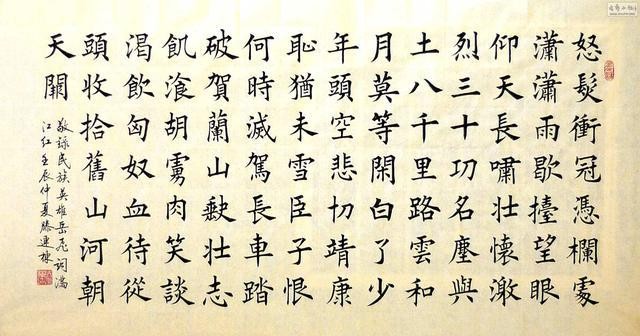 怒髮衝冠憑欄處
瀟瀟雨歇擡望眼
仰天長嘯壯懷激
烈三十功名塵與
土八千里路雲和
月莫等閑白了少
年頭空悲切靖康
恥猶未雪臣子恨
何時滅駕長車踏
破賀蘭山缺壯志
飢飡胡虜肉笑談
渴飲匈奴血待從
頭收拾舊山河朝
天闕
敬錄民族英雄岳飛詞滿
江紅壬辰仲夏滕連棟